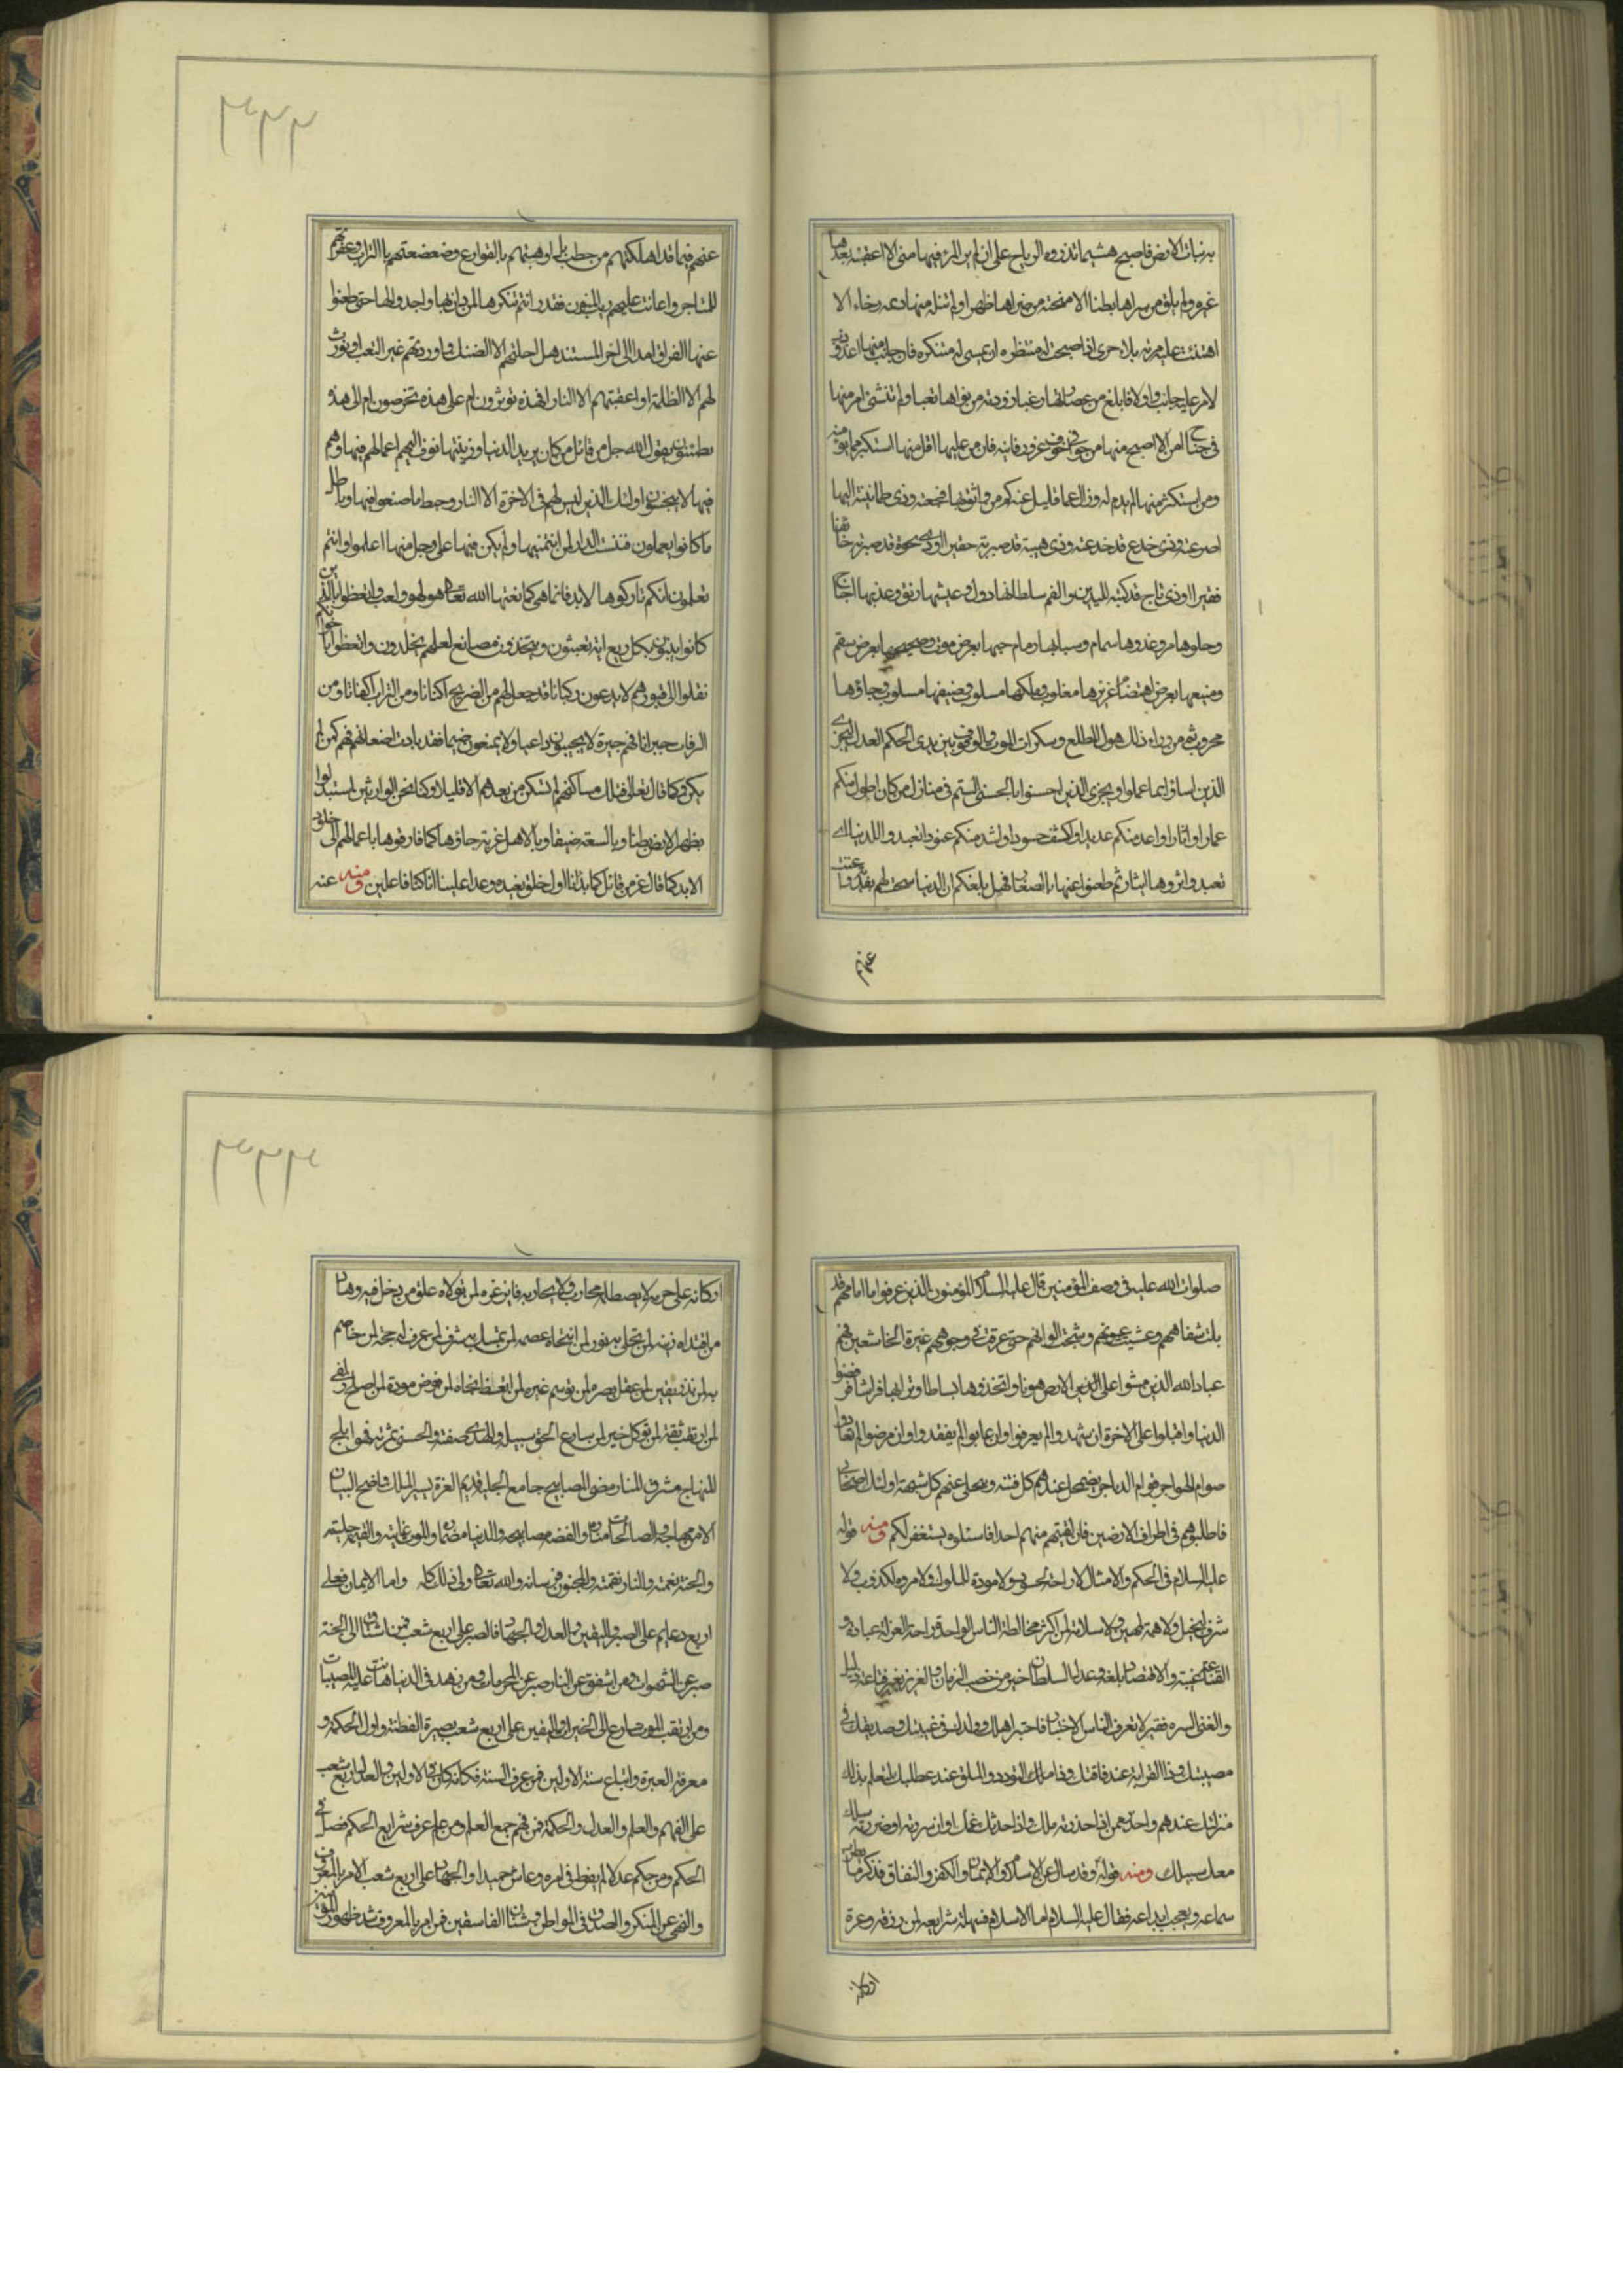 به نبات الارض فاصبح هشيما تذروه الرياح على ان لم ير المرء فيها منى الا اعقبته بعدها
غيره ولم يلق من سرائها بطنا الا منحته من ضرائها ظهرا ولم تنله منها ديمه رخاء الا
هتنت عليه مزنه بلاء حرى اذا اصبحت له منتظره ان تمسى له متنكره فان جانب منها اعذوذب
لامرء
فى جناح امن الا اصبح منها من خوافى خوف غروره فانيه فان من عليها من اقل منها استكثر مما يؤمنه
ومن يستكثر منها لم يدم له وزال عما قليل عنه كم من واثق بها فجعته وذى طمانينة اليها
صرعته وذى خدع قد خدعته وذى هيبة قد صيرته حقيرا وذى نخوة قد صيرته خائفا
فقيرا وذى تاج قد كبته لليدين والفم سلطانها دول وعيشها رنق وعذبها اجاج
وحلوها مر وغذوها سمام واسبابها رمام حيها بعرض موت وصحيحها بعرض سقم
ومنيعها بعرض اهتضام عزيزها مغلوب وملكها مسلوب وضيفها مسلوب وجارها
محروب ثم من وراء ذلك هول المطلع وسكرات الموت والوقوف بين يدى الحكم العدل ليجزى
الذين اساؤا بما عملوا ويجزى الذين احسنوا بالحسنى الستم فى منازل من كان اطول منكم
عمارا واثارا واعد منكم عديدا واكثف جنودا واشد منكم عنودا تعبدوا للدنيا اى
تعبد واثروها اى اثار ثم ظعنوا عنها بالصغار فهل بلغكم ان الدنيا سخت لهم بفدية واغنت
عنهم
۳۳۴
عنهم فيما قد اهلكتهم من خطب بل اوهنتهم بالقوارع وضعضعتهم بالتراب وعقرتهم
للمناخر واعانت عليهم ريب المنون فقد رايتم تنكرها لمن دان بها واجد اليها حتى ظعنوا
عنها الفراق امد الى اخر المستند هل احلتهم الا الضنك او زودتهم غير التعب او نورت
لهم الا الظلمة او اعقبتهم الا النار افهذه تؤثرون ام على هذه تحرصون ام الى هذه
تطمئنون يقول الله جل من قائل من كان يريد الدنيا وزينتها نوف اليهم اعمالهم فيها وهم
فيها لا يبخسون اولئك الذين ليس لهم فى الاخرة الا النار وحبط ما صنعوا فيها وباطل
ما كانوا يعملون فبئست الدار لمن لم يتهمها ولم يكن فيها على وجل منها اعلموا وانتم
تعلمون انكم تاركوها لا بد فانما هى كما نعتها الله تعالى لهو ولعب واتعظوا بالذين
كانوا يبنون بكل ريع اية تعبثون ويتخذون مصانع لعلهم يخلدون واتعظوا باخوانكم
نقلوا الى قبورهم لا يدعون ركبانا قد جعل لهم من الضريح اكنانا ومن التراب اكفانا ومن
الرفات جيرانا فهم جيرة لا يجيبون داعيا ولا يمنعون ضيما فقد بادت اضغانهم فهم كمن لم
يكن وكما قال تعالى فتلك مساكنهم لم تسكن من بعدهم الا قليلا وكنا نحن الوارثين استبدلوا
بظهر الارض بطنا وبالسعة ضيقا وبالاهل غربة جاؤها كما فارقوها باعمالهم الى خلود
الابد كما قال عز من قائل كما بدانا اول خلق نعيده وعدا علينا انا كنا فاعلين ومنه عنه
صلوات الله عليه فى وصف المؤمنين قال عليه السلام المؤمنون الذين عرفوا ما امامهم قد
يبلت شفاههم وعشيت عيونهم وشحبت الوانهم حتى عرفت فى وجوههم غبرة الخاشعين فهم
عباد الله الذين مشوا على الارض هونا واتخذوها بساطا وترابها فراشا فرفضوا
الدنيا واقبلوا على الاخرة ان شهدوا لم يعرفوا وان غابوا لم يفقدوا وان مرضوا لم يعادوا
صوام الهواجر قوام الدياجر يضمحل عندهم كل فتنه وتجلى عنهم كل شبهة اولئك اصحابى
فاطلبوهم فى اطراف الارضين فان لقيتم منهم احدا فاسئلوه يستغفر لكم ومنه قوله
عليه السلام فى الحكم والامثال لا راحة لحسود ولا مودة للملوك ولا مروة لكذوب ولا
شرف لبخيل ولا همة لمهين ولا سلامة لمن اكثر مخالطة الناس الوحدة راحة العزلة عبادة و
القناعة غنية والاقتصاد بلغة وعدل السلطان خير من خصب الزمان والعزيز بغير قناعة ذليل
والغنى الشره فقير لا تعرف الناس الا بالاختبار فاختبر اهلك وولدك فى غيبتك وصديقك فى
مصيبتك وذا القرابة عند فاقتك وذا الملك التودد والملق عند عطلتك لتعلم بذلك
منزلتك عندهم واحذر ممن اذا حدثته ملك واذا حدثك غمك وان سررته او ضررته سلك
معك سبيلك ومنه قوله وقد سال عن الاسلام والايمان والكفر والنفاق فذكر ما
سماعه ويعجب ابداعه فقال عليه السلام اما الاسلام فسهل شرايعه لمن ورده وعزة
اركانه
۳۳۴
اركانه على من حاربه
من اقتداه زينة لمن تحلى به نور لمن انتحاه عصمة لمن تمسك به شرف لمن عرفه حجة لمن خاصم
به لمن تدبر يقين لمن عقل بصرة لمن توسم عبرة لمن اتعظ نجاة لمن فوض مودة لمن اصلح زلفى
لمن ارتقب ثقة لمن توكل خير لمن سارع الحق سبيله والهدى صفته والحسنى مأثرته فهو ابلج
المنهاج مشرق المنار مضئ المصابيح جامع الحلبة قديم العزة يسير المسلك واضح البيان
الايمان منهاجه والصالحات مناره والفقه مصابيحه والدنيا مضماره والموت غايته والقيمة حلبته
والجنة نعمته والنار نقمته والمحسنون فرسانه والله تعالى ولى ذلك كله واما الايمان فعلى
اربع دعايم على الصبر واليقين والعدل والجهاد فالصبر على اربع شعب فمن اشتاق الى الجنة
صبر عن الشهوات ومن اشفق عن النار صبر عن المحرمات ومن زهد فى الدنيا هانت عليه المصيبات
ومن ارتقب الموت سارع الى الخيرات واليقين على اربع شعب بصيرة الفطنة وتاول الحكمة و
معرفة العبرة واتباع سنة الاولين فمن عرف السنة فكانه كان فى الاولين والعدل اربع شعب
على الفهم والعلم والعدل والحكمة فمن فهم جمع العلم ومن علم عرف شرايع الحكم فضل فى
الحكم ومن حكم عدلا لم يفرط فى امره وعاش حميدا والجهاد على اربع شعب الامر بالمعروف
والنهى عن المنكر والصدق فى المواطن وشنان الفاسقين فمن امر بالمعروف شد ظهور المؤمنين